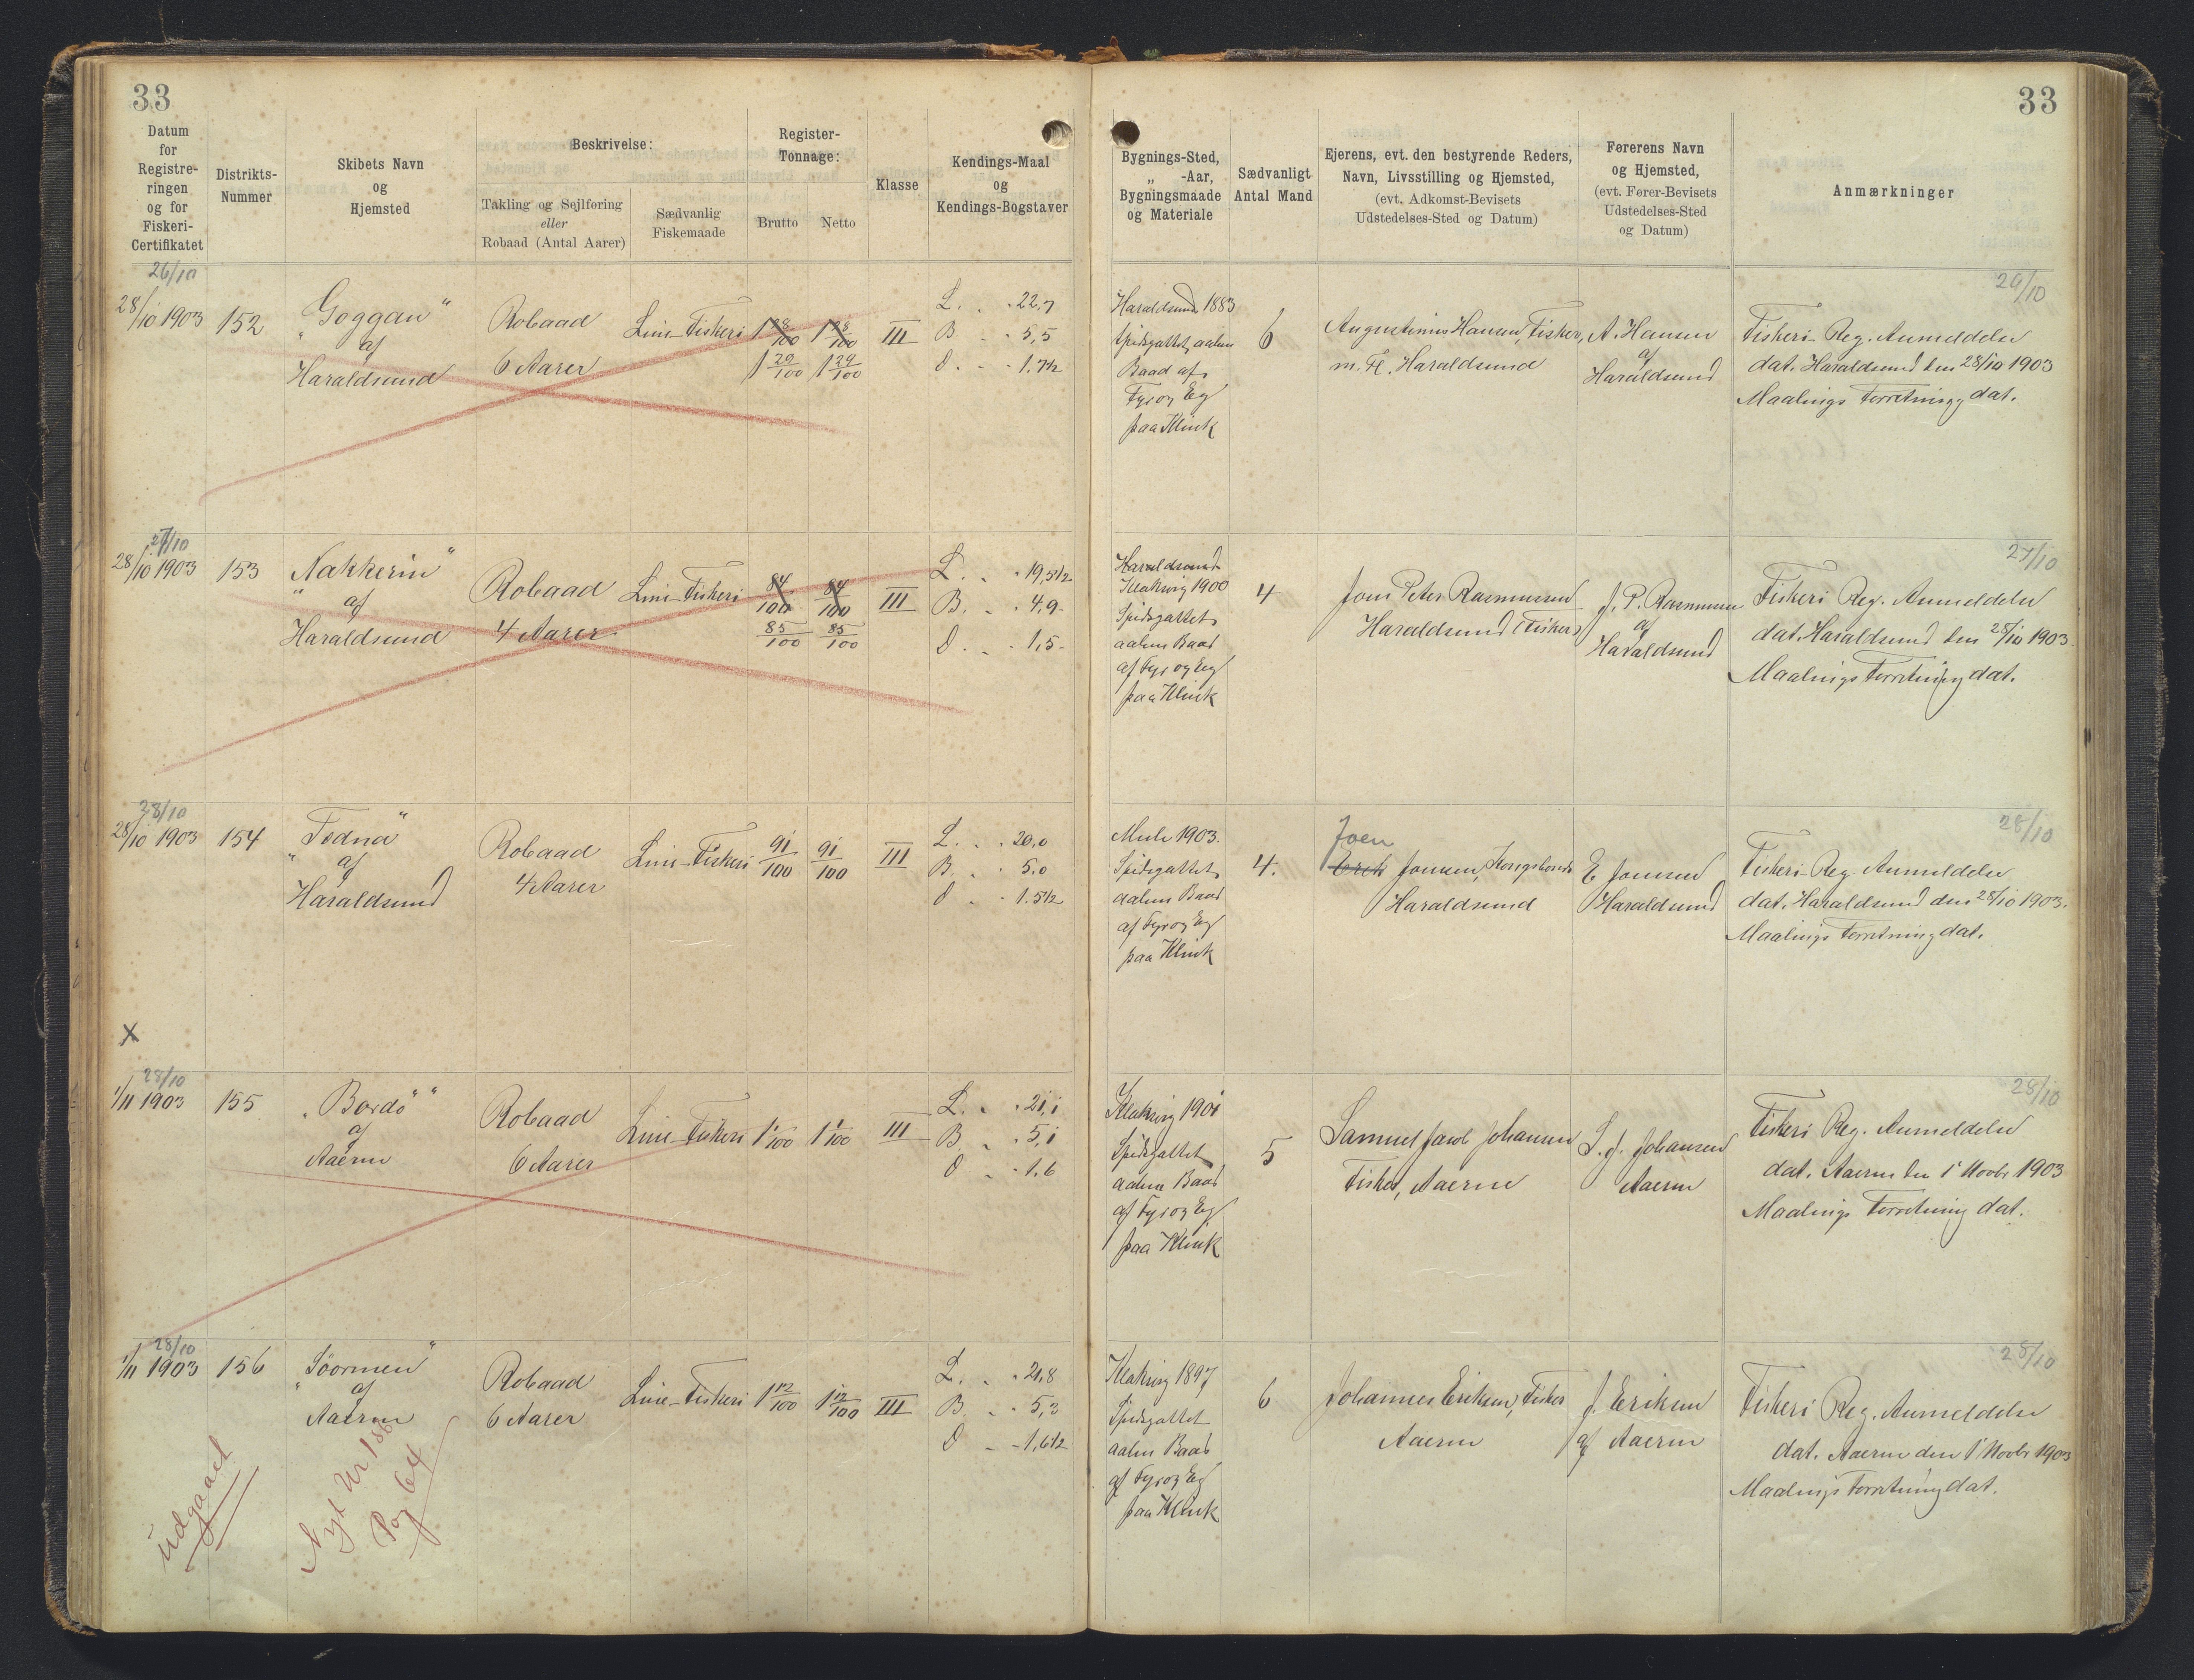 33
33
Datum
for
Registre-
ringen
og for
Fiskeri-
Certifikatet
Distrikts-
Nummer
Skibets Navn
og
Hjemsted
Beskrivelse:
Takling og Sejlføring
eller
Robaad (Antal Aarer)
Sædvanlig
Fiskemaade
Register-
Tonnage:
Brutto
Netto
Klasse
Kendings-Maal
og
Kendings-Bogstaver
Bygnings-Sted,
„ -Aar,
Bygningsmaade
og Materiale
Sædvanligt
Antal Mand
Ejerens, evt. den bestyrende Reders,
Navn, Livsstilling og Hjemsted,
(evt. Adkomst-Bevisets
Udstedelses-Sted og Datum)
Førerens Navn
og Hjemsted,
(evt. Fører-Bevisets
Udstedelses-Sted
og Datum)
Anmærkninger
26/10
28/10 1903
152
„Goggan“
af
Haraldsund
Robaad
6 Aarer
Line-Fiskeri
1 28/100
1 28/100
1 29/100
1 29/100
III
L. . . 22,7
B . . 5,5
D. . . 1,7½
Haraldsund 1883
Spidsgattet, aaben
Baad af
Fyr og Eg
paa Klink
6
Augustinus Hansen, Fisker,
m. Fl. Haraldsund
A. Hansen
af
Haraldsund
26/10
Fiskeri-Reg. Anmeldelse
dat. Haraldsund den 28/10 1903
Maalings Forretning dat.
27/10
28/10 1903
153
„Nakkerin“
af
Haraldsund
Robaad
4 Aarer
Line-Fiskeri
84/100
84/100
85/100
85/100
III
L. . . 19,5½
B. . . 4,9
D. . . 1,5
Haraldsund
Klaksvig 1900
Spidsgattet
aaben Baad
af Fyr og Eg
paa Klink
4
Joen Peter Rasmussen
Haraldsund (Fisker)
J. P. Rasmussen
af
Haraldsund
27/10
Fiskeri Reg. Anmeldelse
dat. Haraldsund den 28/10 1903
Maalings Forretning dat.
28/10
28/10 1903
154
„Todna“
af
Haraldsund
Robaad
4 Aarer
Line-Fiskeri
91/100
91/100
III
L. . . 20,0
B. . . 5.0
D . . 1.5½
Mule 1903.
Spidsgattet
aaben Baad
af Fyr og Eg
paa Klink
4.
Joen
Erik Joensen, Kongsbonde
Haraldsund
E Joensen
Haraldsund
28/10
Fiskeri-Reg. Anmeldelse
dat. Haraldsund den 28/10 1903.
Maalings Forretning dat.
X
28/10
1/11 1903
155
„Bordö“
af
Aaerne
Robaad
6 Aarer
Line-Fiskeri
1 1/100
1 1/100
III
L. . . 21,1
B . . 5,1
D . . 1.6
Klaksvig 1901
Spidsgattet
aaben Baad
af Fyr og Eg
paa Klink
5
Samuel Jacob Johansen
Fisker, Aaerne
S. J. Johansen
Aaerne
28/10
Fiskeri Reg. Anmeldelse
dat. Aaerne den 1 Novbr 1903
Maalings Forretning dat.
28/10
1/11 1903
156
„Söormen“
af
Aaerne
Robaad
6 Aarer
Line-Fiskeri
1 12/100
1 12/100
III
L. . . 21,8
B. . . 5,3
D . . 1,6½
Klaksvig 1897
Spidsgattet
aaben Baad
af Fyr og Eg
paa Klink
6
Johannes Eriksen, Fisker
Aaerne
J. Eriksen
af Aaerne
28/10
Fiskeri Reg. Anmeldelse
dat. Aaerne den 1 Novbr 1903
Maalings Forretning dat.
udgaaet
Nyt Nr 186
Pag 64